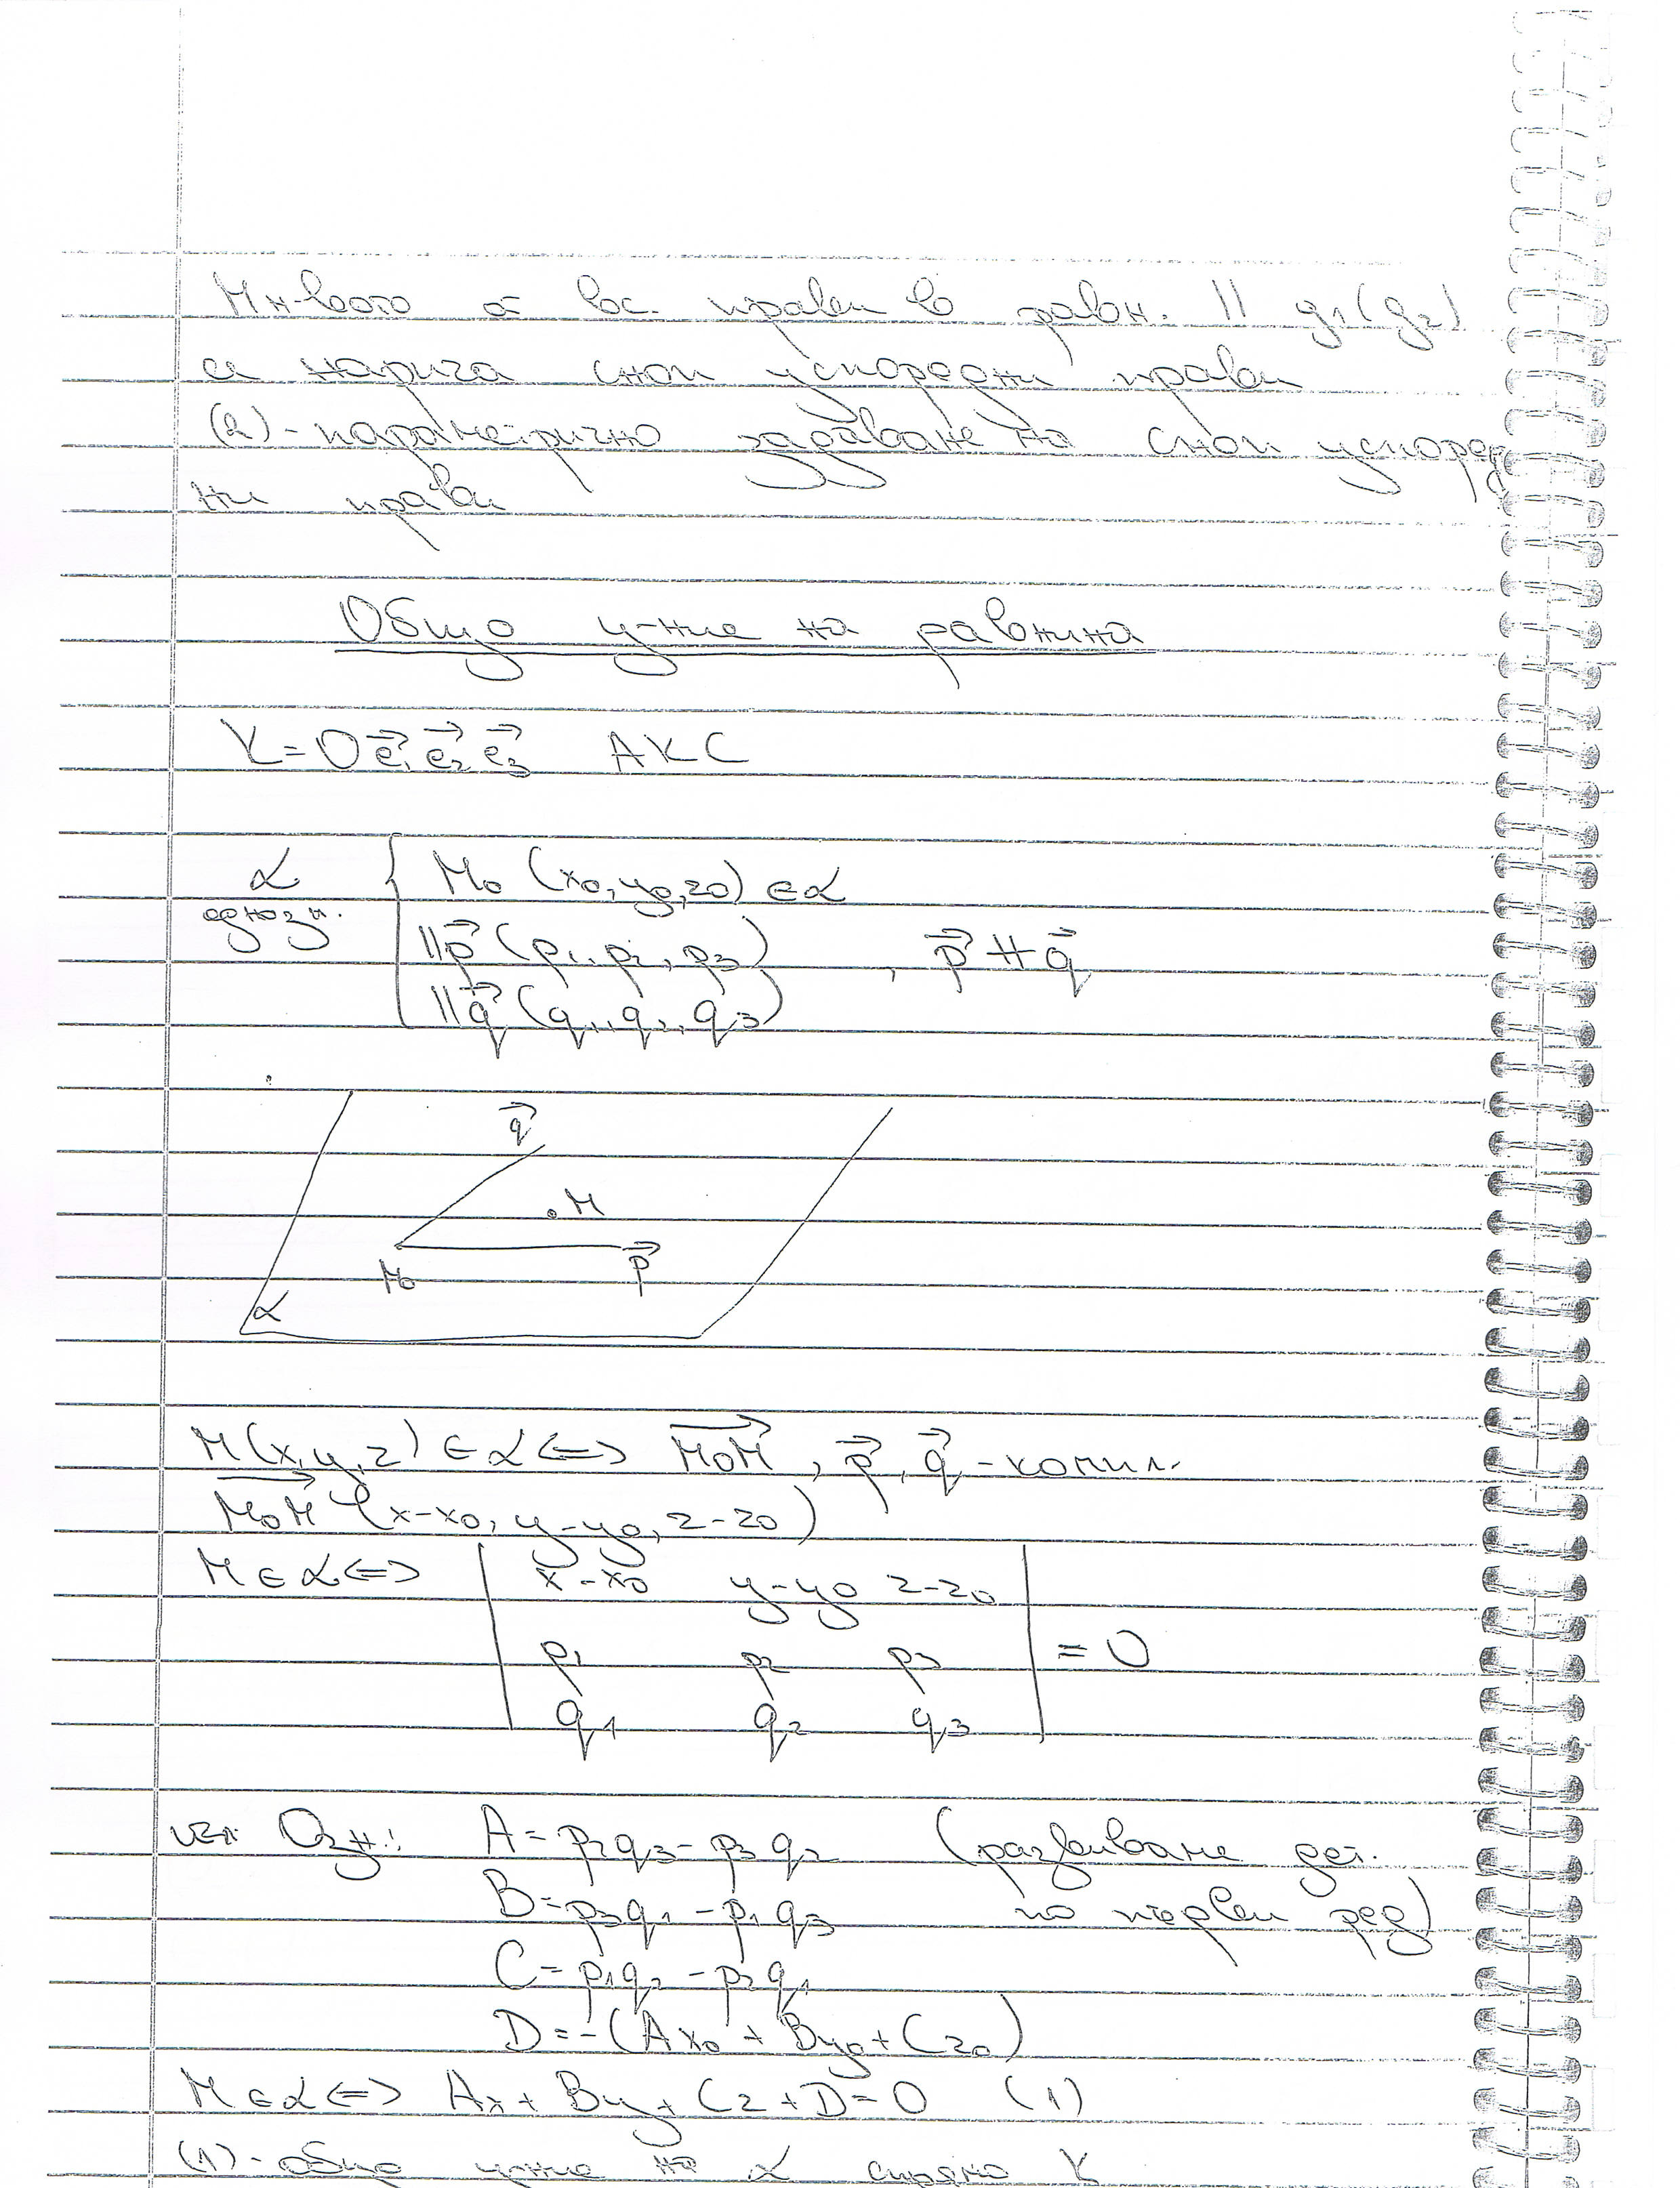 Мн-вото от вс. прави в равн. || g₁(g₂)
се нарича сноп успоредни прави
(2)-параметрично задаване на сноп успоред
ни прави
Общо у-ние на равнина
K=Oe⃗₁e⃗₂e⃗₃ АКС
α { M₀(x₀,y₀,z₀) ∈ α
еднозн.
||p⃗(p₁,p₂,p₃) , p⃗ ∦ q⃗
||q⃗(q₁,q₂,q₃)
q⃗
M
M₀ p⃗
α
M(x,y,z) ∈ α <=> M₀M⃗, p⃗, q⃗ -компл.
M₀M⃗(x-x₀, y-y₀, z-z₀)
M ∈ α <=> | x-x₀ y-y₀ z-z₀ |
p₁ p₂ p₃ = 0
q₁ q₂ q₃
Озн.: A = p₂q₃ - p₃q₂ (развиване дет.
B = p₃q₁ - p₁q₃ по първи ред)
C = p₁q₂ - p₂q₁
D = -(Ax₀ + By₀ + Cz₀)
M ∈ α <=> Ax + By + Cz + D = 0 (1)
(1)-общо у-ние на α спрямо K